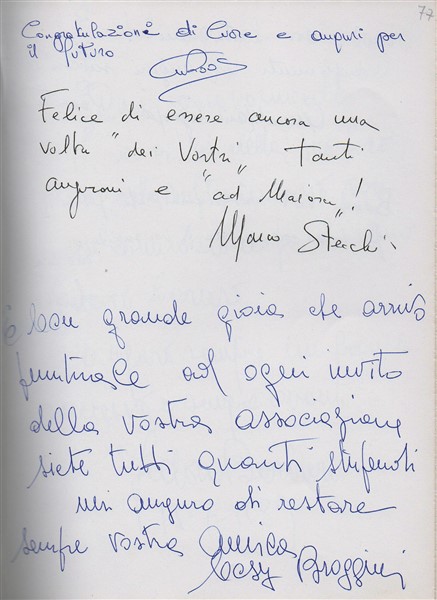 77
Congratulazioni di Cuore e auguri per
il futuro
Felice di essere ancora una
volta "dei Vostri" Tanti
auguroni e "ad Maiora"!
Marco
è con grande gioia che arrivo
puntuale ad ogni invito
della vostra associazione
siete tutti quanti stupendi
mi auguro di restare
sempre vostra amica
Cesy Broggini